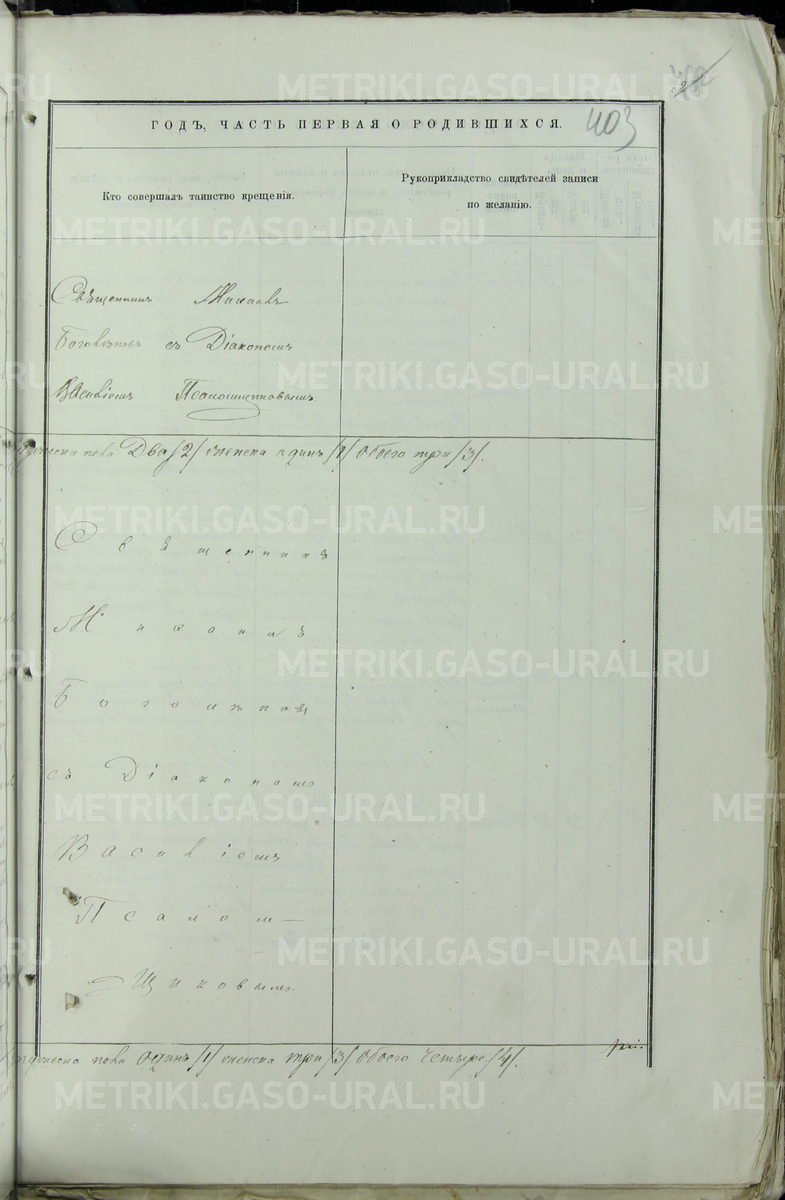 403
ГОДЪ, ЧАСТЬ ПЕРВАЯ О РОДИВШИХСЯ.
Кто совершалъ таинство крещенія.
Рукоприкладство свидѣтелей записи
по желанію.
Священникъ Михаилъ
Боголѣповъ съ Діакономъ
Василіемъ Псаломщиковымъ
пола Два /2/ женска одинъ /1/ обоего три /3/.
Священникъ
Михаилъ
Боголѣповъ
съ Діакономъ
Василіемъ
Псалом—
щиковымъ
пола Одинъ /1/ женска три /3/ Обоего Четыре /4/.
METRIKI.GASO-URAL.RU